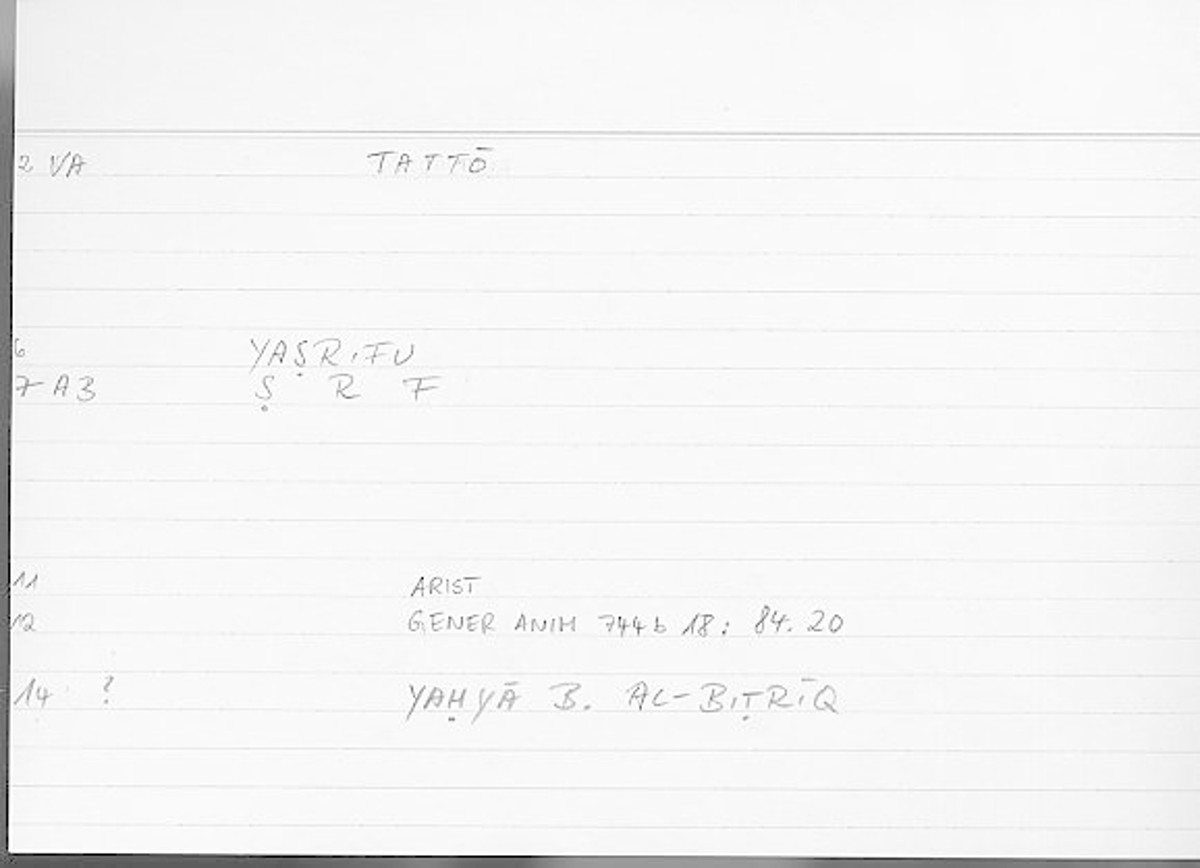 2 VA TATTŌ
6 YAṢRIFU
7 AB Ṣ R F
11 ARIST
12 GENER ANIM 744b 18: 84.20
14 ? YAḤYĀ B. AL-BIṬRĪQ